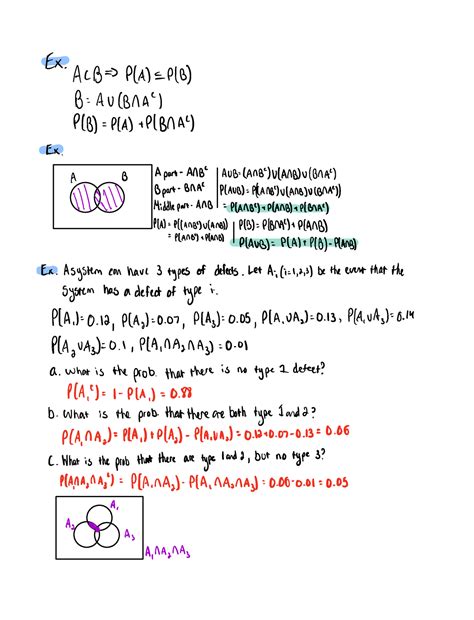 Ex. A⊂B ⇒ P(A) ≤ P(B)
B = A∪(B∩Aᶜ)
P(B) = P(A) + P(B∩Aᶜ)
Ex.
A B
A part - A∩Bᶜ
B part - B∩Aᶜ
Middle part - A∩B
P(A) = P((A∩Bᶜ)∪(A∩B))
= P(A∩Bᶜ) + P(A∩B)
A∪B = (A∩Bᶜ)∪(A∩B)∪(B∩Aᶜ)
P(A∪B) = P((A∩Bᶜ)∪(A∩B)∪(B∩Aᶜ))
= P(A∩Bᶜ) + P(A∩B) + P(B∩Aᶜ)
P(B) = P(B∩Aᶜ) + P(A∩B)
P(A∪B) = P(A) + P(B) - P(A∩B)
Ex. A system can have 3 types of defects. Let Aᵢ (i=1,2,3) be the event that the
system has a defect of type i.
P(A₁) = 0.12, P(A₂) = 0.07, P(A₃) = 0.05, P(A₁∪A₂) = 0.13, P(A₁∪A₃) = 0.14
P(A₂∪A₃) = 0.1, P(A₁∩A₂∩A₃) = 0.01
a. What is the prob. that there is no type 1 defect?
P(A₁ᶜ) = 1 - P(A₁) = 0.88
b. What is the prob that there are both type 1 and 2?
P(A₁∩A₂) = P(A₁) + P(A₂) - P(A₁∪A₂) = 0.12+0.07-0.13 = 0.06
C. What is the prob that there are type 1 and 2, but no type 3?
P(A₁∩A₂∩A₃ᶜ) = P(A₁∩A₂) - P(A₁∩A₂∩A₃) = 0.06-0.01 = 0.05
A₁
A₂
A₃
A₁∩A₂∩A₃